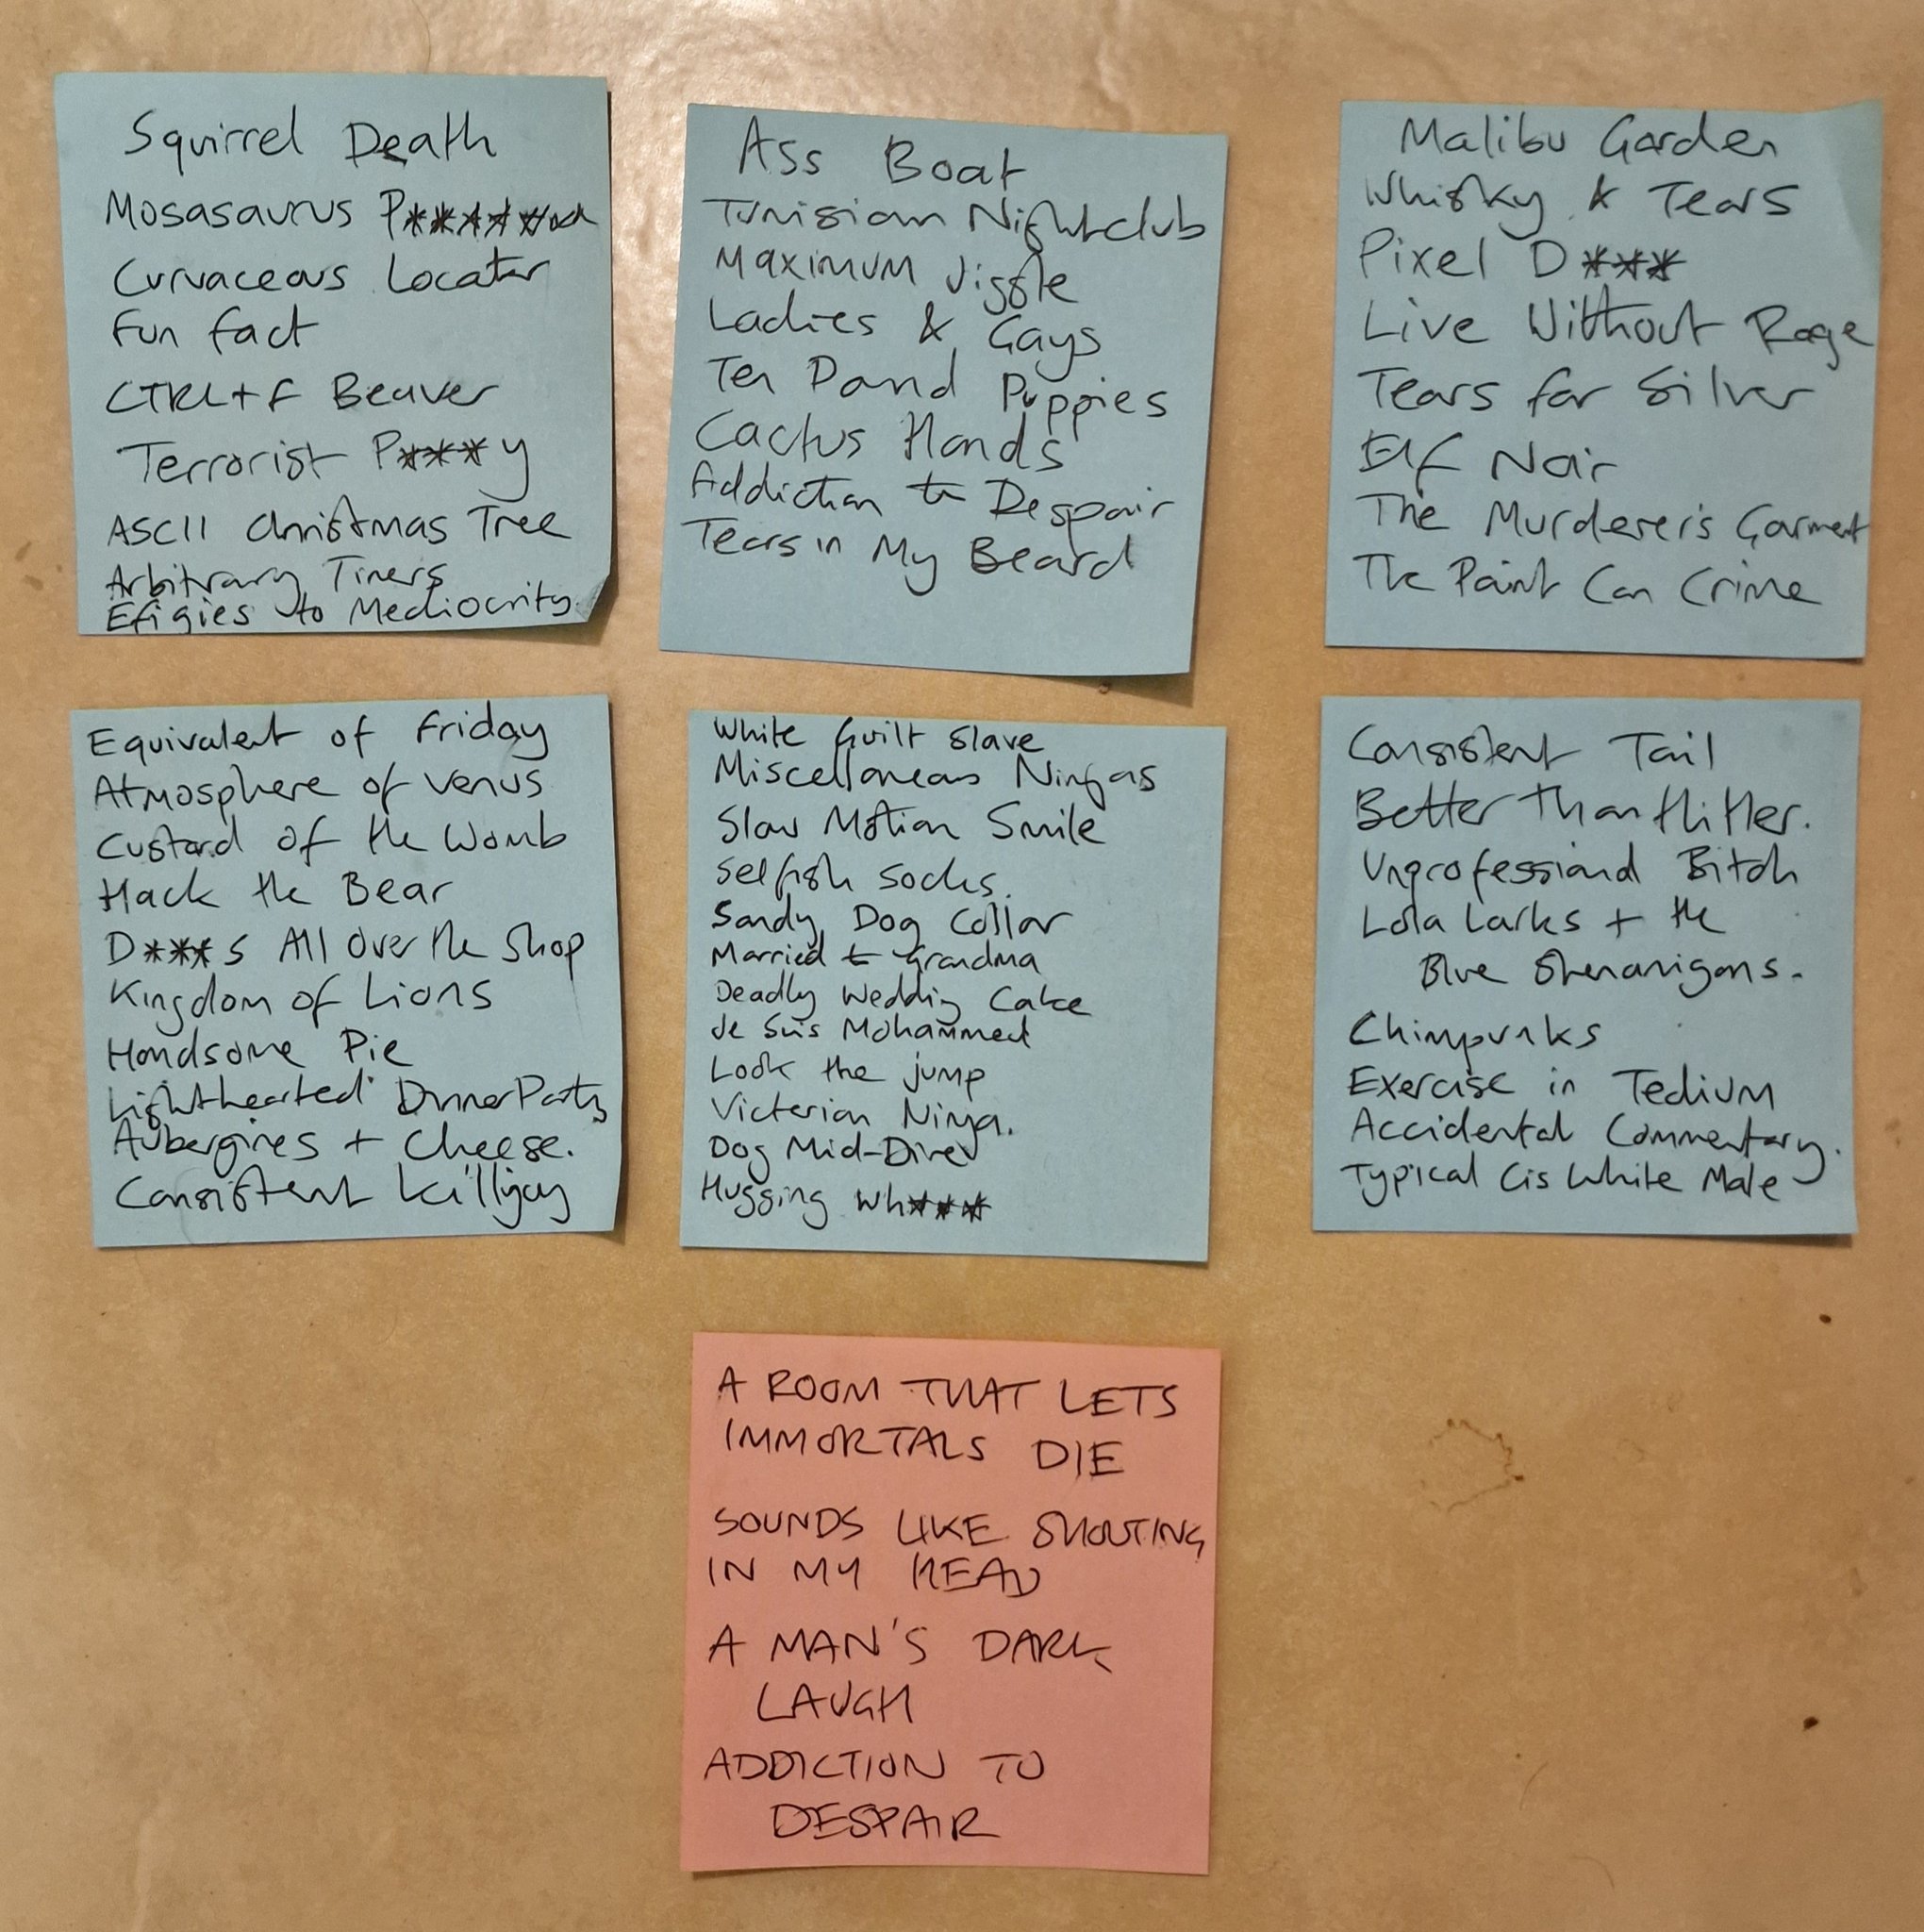 Squirrel Death
Mosasaurus
Curvaceous Locator
Fun fact
CTRL+F Beaver
Terrorist P***y
ASCII Christmas Tree
Arbitrary Tiners
Efigies to Mediocrity.
Ass Boat
Tunisian Nightclub
Maximum Jiggle
Ladies & Gays
Ten Pound Puppies
Cactus Hands
Addiction to Despair
Tears in My Beard
Malibu Garden
Whisky & Tears
Pixel D***
Live Without Rage
Tears for Silver
Elf Noir
The Murderer's Garment
The Paint Can Crime
Equivalent of Friday
Atmosphere of Venus
Custard of the Womb
Hack the Bear
D***s All Over the Shop
Kingdom of Lions
Handsome Pie
Lighthearted Dinner Party
Aubergines + Cheese.
Consistent Killjoy
White Guilt Slave
Miscellaneous Ninjas
Slow Motion Smile
Selfish Socks.
Sandy Dog Collar
Married to Grandma
Deadly Wedding Cake
Je Suis Mohammed
Look the jump
Victorian Ninja.
Dog Mid-Dive
Hugging Wh***
Consistent Tail
Better Than Hitler.
Unprofessional Bitch
Lola Larks + the
Blue Shenanigans.
Chimpunks
Exercise in Tedium
Accidental Commentary.
Typical Cis White Male
A ROOM THAT LETS
IMMORTALS DIE
SOUNDS LIKE SHOUTING
IN MY HEAD
A MAN'S DARK
LAUGH
ADDICTION TO
DESPAIR